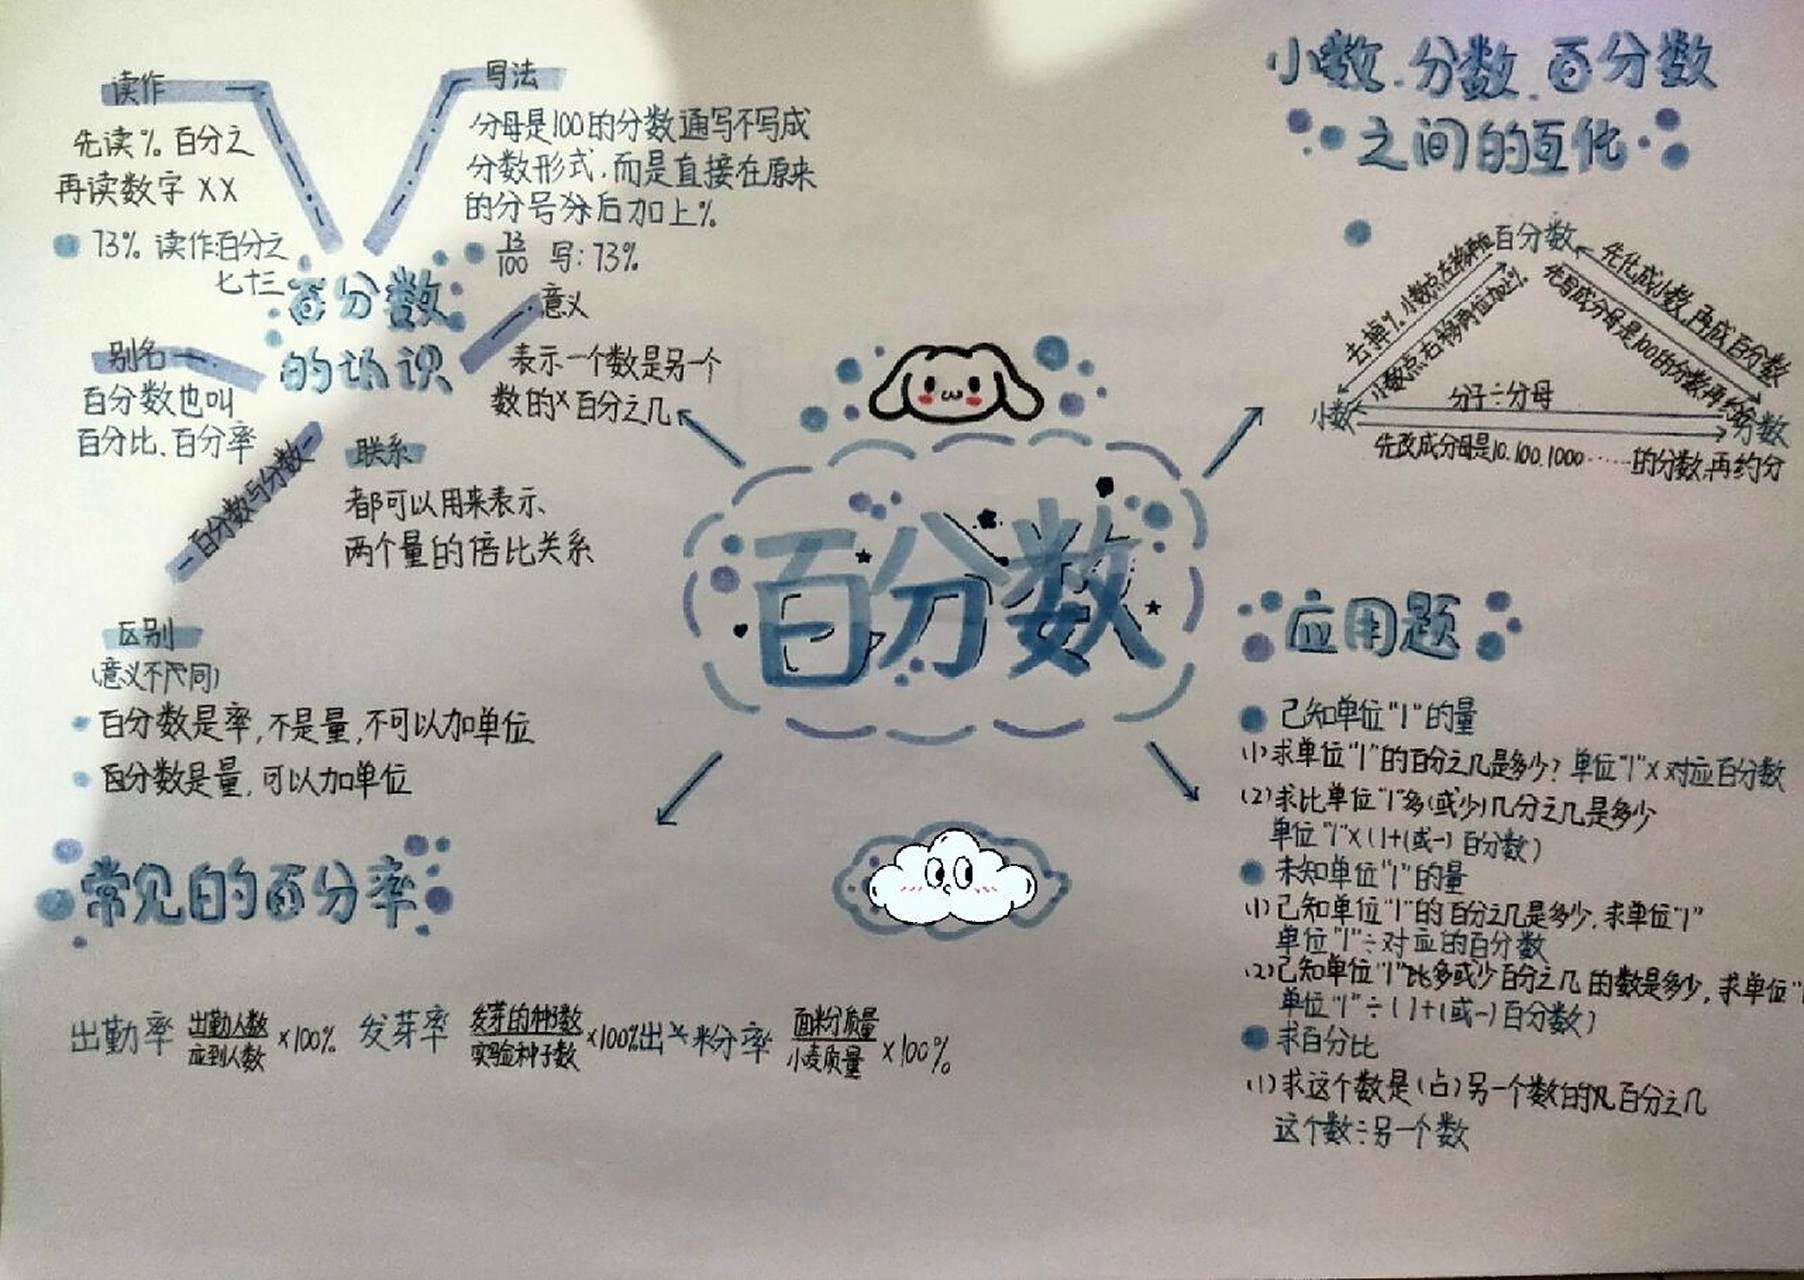 百分数
百分数
的认识
读作
先读% 百分之
再读数字 XX
73% 读作百分之
七十三
写法
分母是100的分数通写不写成
分数形式,而是直接在原来
的分号后加上%
73/100 写:73%
意义
表示一个数是另一个
数的百分之几
别名
百分数也叫
百分比、百分率
百分数与分数
联系
都可以用来表示、
两个量的倍比关系
区别
(意义不同)
百分数是率,不是量,不可以加单位
百分数是量,可以加单位
常见的百分率
出勤率 出勤人数/应到人数 ×100% 发芽率 发芽的种子数/实验种子数 ×100% 出粉率 面粉质量/小麦质量 ×100%
小数、分数、百分数
之间的互化
百分数
去掉% 小数点左移两位
小数点右移两位加上%
先化成小数,再成百分数
先写成分母是100的分数,再约分
小数
分子÷分母
分数
先改成分母是10.100.1000……的分数,再约分
应用题
已知单位"1"的量
(1)求单位"1"的百分之几是多少? 单位"1"×对应百分数
(2)求比单位"1"多(或少)几分之几是多少
单位"1"×(1+(或-)百分数)
未知单位"1"的量
(1)已知单位"1"的百分之几是多少,求单位"1"
单位"1"÷对应的百分数
(2)已知单位"1"比多或少百分之几的数是多少,求单位"1
单位"1"÷(1+(或-)百分数)
求百分比
(1)求这个数是(占)另一个数的百分之几
这个数÷另一个数